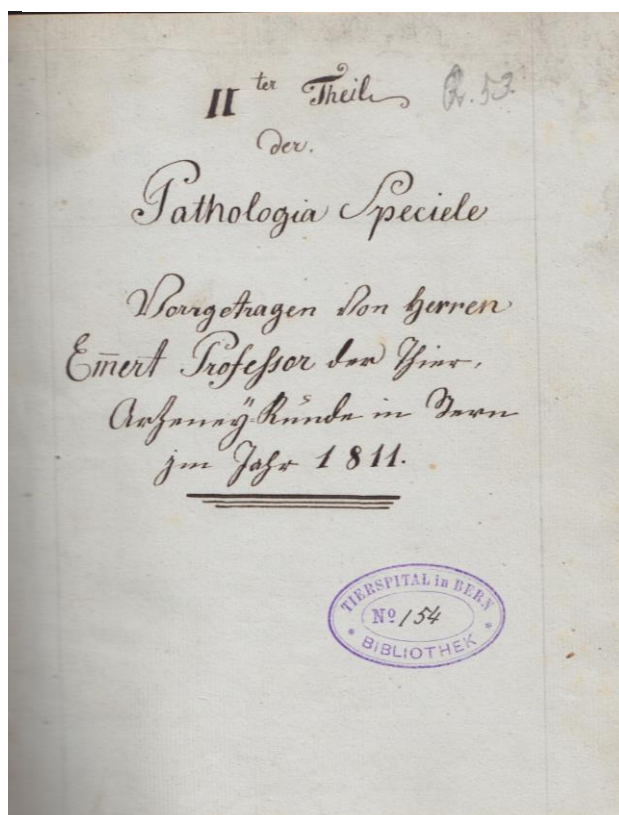 IIter Theil R. 53.
der.
Pathologia Speciele
Vorrgetragen von Herren
Em̅ert Professor der Thier,
Arzeney-Kunde in Bern
im Jahr 1811.
TIERSPITAL in BERN
Nº 154
* BIBLIOTHEK *